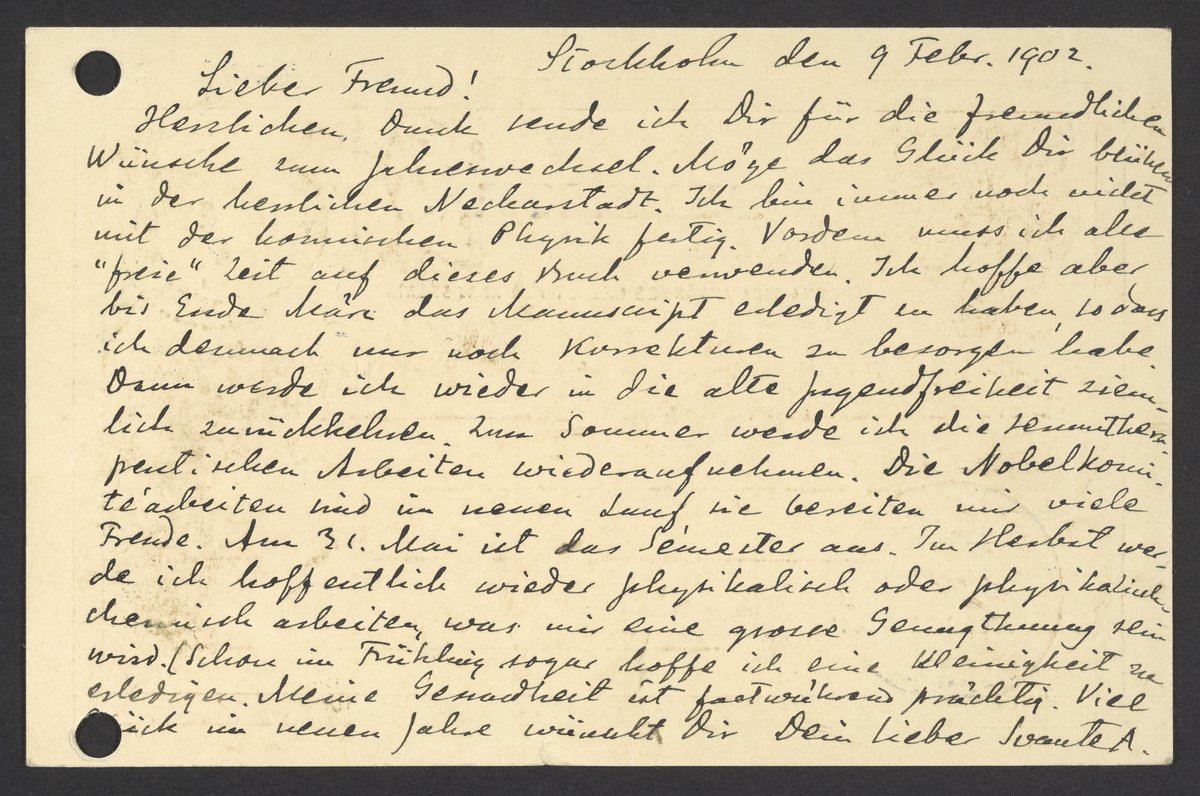 Stockholm den 9 Febr. 1902.
Lieber Freund!
Herzlichen Dank sende ich Dir für die freundlichen
Wünsche zum Jahreswechsel. Möge das Glück Dir blühen
in der herrlichen Neckarstadt. Ich bin immer noch nicht
mit der kosmischen Physik fertig. Vordem muss ich alle
"freie" Zeit auf dieses Buch verwenden. Ich hoffe aber
bis Ende März das Manuscript erledigt zu haben, so dass
ich demnach nur noch Korrekturen zu besorgen habe.
Dann werde ich wieder in die alte Jugendfreiheit ziem-
lich zurückkehren. Zum Sommer werde ich die serumthera-
peutischen Arbeiten wiederaufnehmen. Die Nobelkomi-
téarbeiten sind im neuen Lauf sie bereiten mir viele
Freude. Am 31. Mai ist das Semester aus. Im Herbst wer-
de ich hoffentlich wieder physikalisch oder physikalisch-
chemisch arbeiten, was mir eine grosse Genugthuung sein
wird. (Schon im Frühling sogar hoffe ich eine Kleinigkeit zu
erledigen. Meine Gesundheit ist fortwährend prächtig. Viel
Glück im neuen Jahre wünscht Dir Dein lieber Svante A.